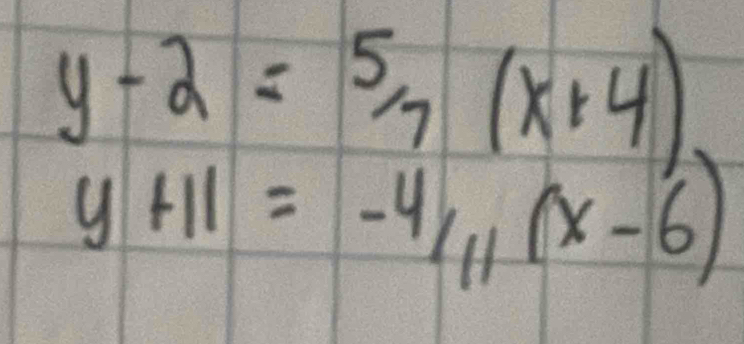 y - 2 = 5/7 (x + 4)
y + 11 = -4/11 (x - 6)